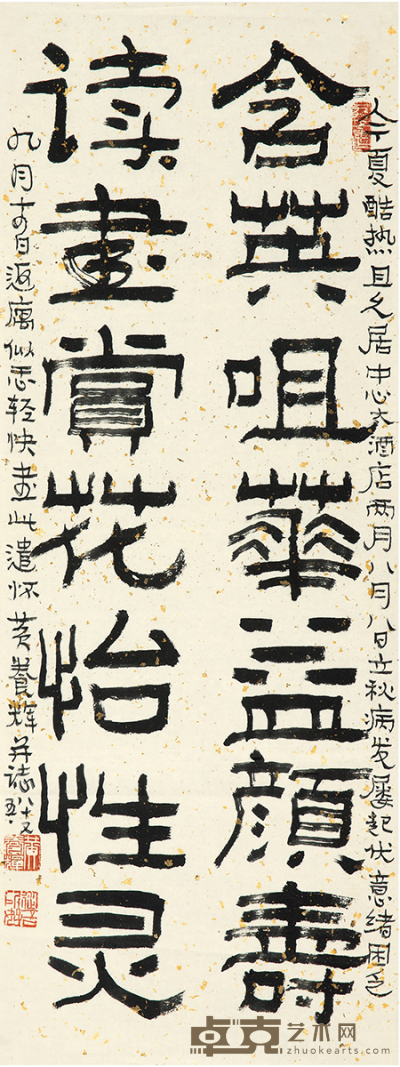 今夏酷热且久居中心大酒店两月八月八日立秋病发屡起伏意绪困乏
含英咀華益顔壽
读畫賞花怡性灵
九月日返寓似轻快畫此遣怀黄養辉并誌八十又
卓克艺术网
zhuokearts.com